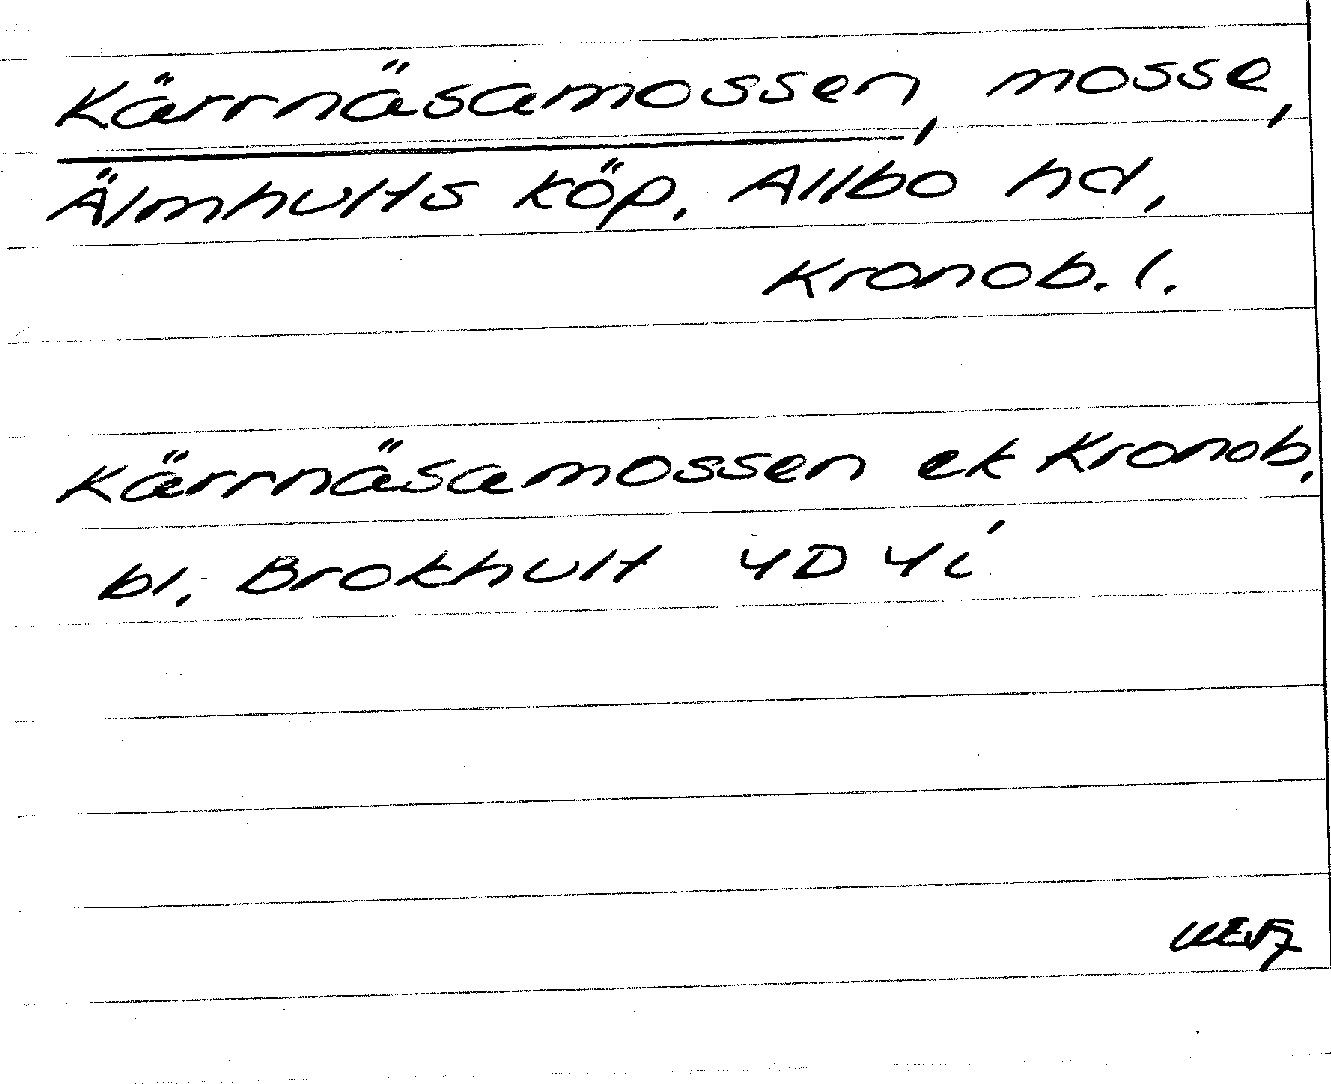 Kärrnäsamossen, mosse,
Älmhults köp. Allbo hd,
Kronob. l.
Kärrnäsamossen ek Kronob.
bl. Brokhult 4D 4i